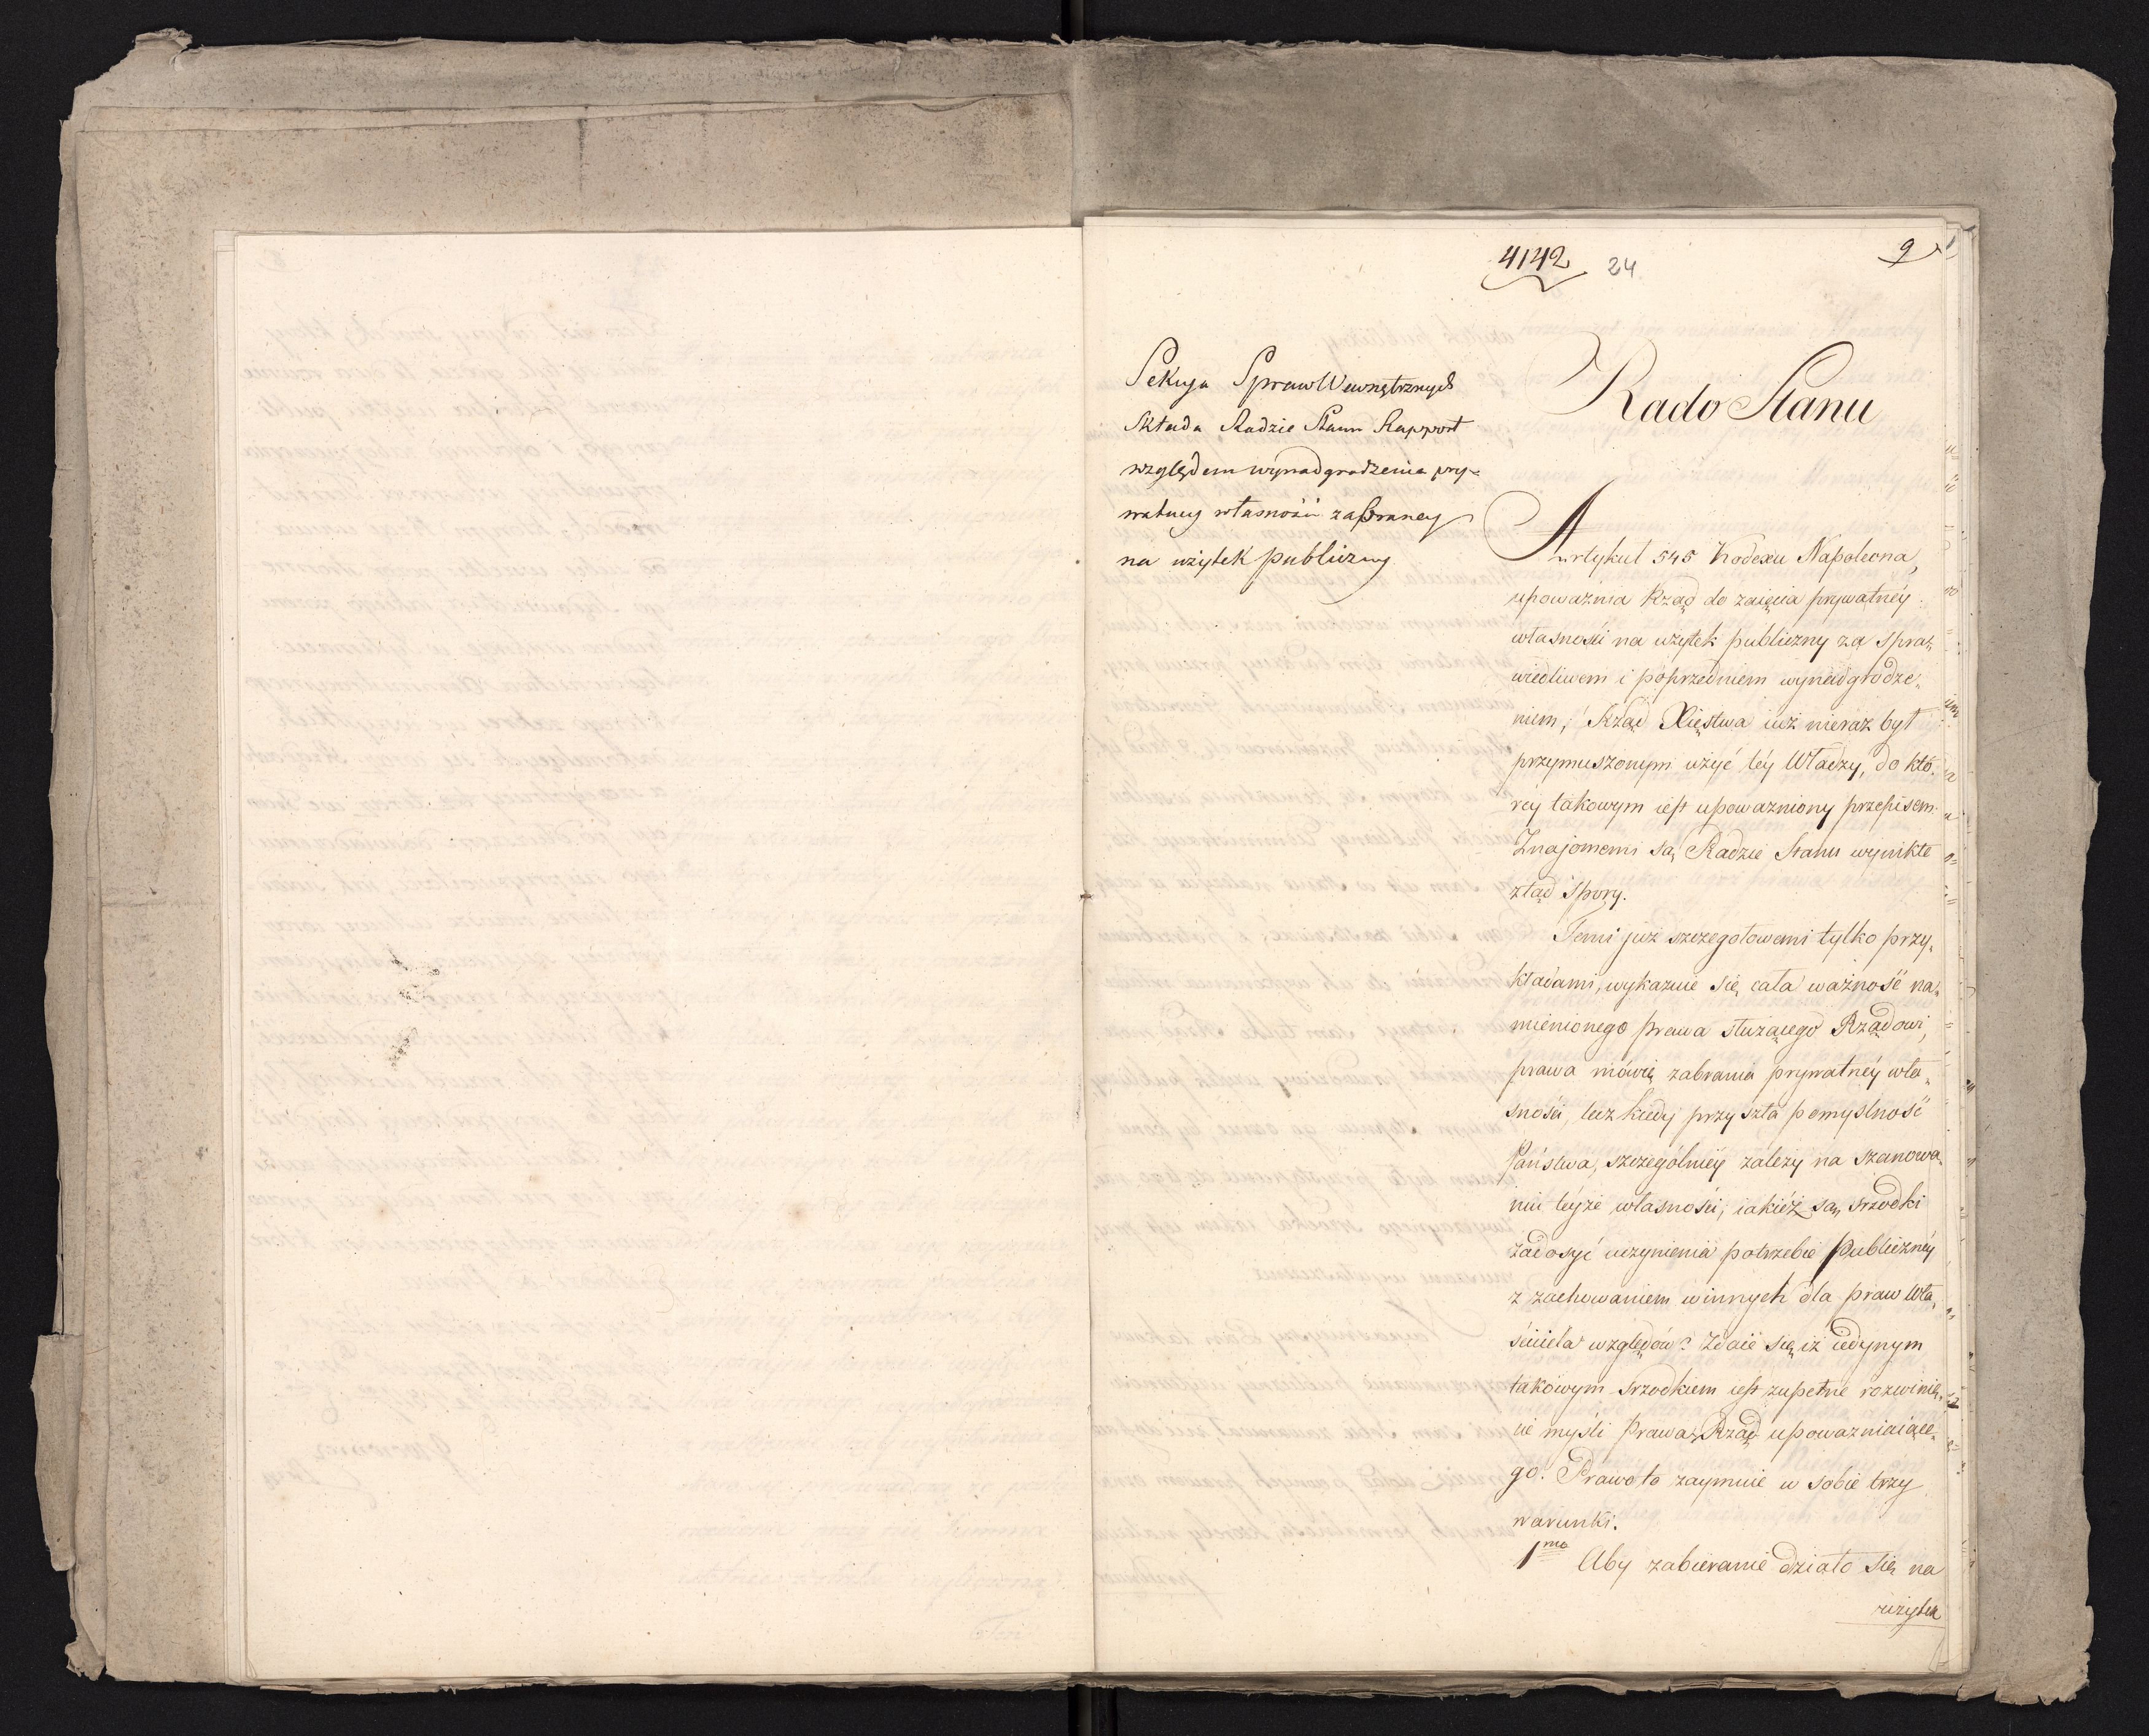 4142 24
9
Sekcya Spraw Wewnętrznych
składa Radzie Stanu Rapport
względem wynadgrodzenia pry-
watney własności zabraney
na użytek publiczny
Rado Stanu
Artykuł 545 Kodexu Napoleona,
upoważnia Rząd do zaięcia prywatnéy
własności na użytek publiczny za spra„
wiedliwem i poprzedniem wynadgrodze„
niem; Rząd Xięstwa iuż nieraz był
przymuszonym użyć téy Władzy, do któ„
réy takowym iest upoważniony przepisem.
Znajomemi są Radzie Stanu wynikłe
ztąd spory.
Temi już szczegołowemi tylko przy„
kładami, wykazuie się cała ważność na„
mienionego prawa służącego Rządowi,
prawa mówię zabrania prywatnéy wła„
sności, lecz kiedy przyszła pomyslność
Państwa, szczególniéy zależy na szanowa„
niu téyże własności, iakiéż są srzodki
zadosyć uczynienia potrzebie Publicznéy
z zachowaniem winnych dla praw Wła„
ściciela względów? Zdaie się iż iedynym
takowym srzodkiem iest zupełne rozwinię„
cie myśli Prawa Rząd upoważniaiące„
go. Prawo to zaymuie w sobie trzy
warunki.
1mo Aby zabieranie działo się na
użytek